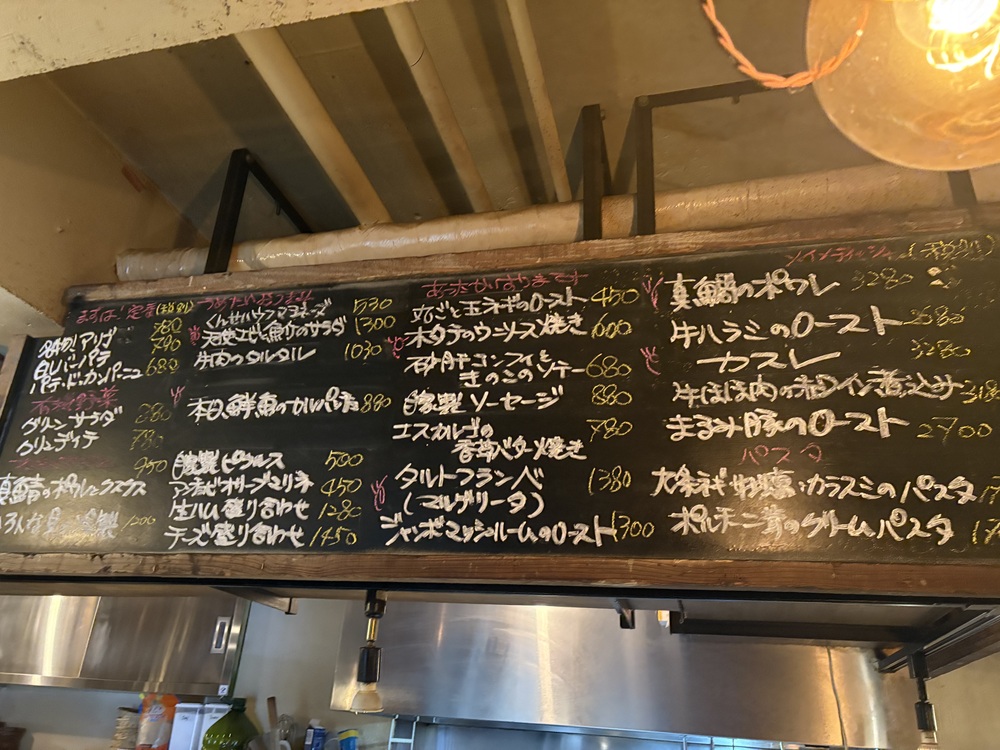 まずは！定番(税別)
380
790
白レバーパテ
パテ・ド・カンパーニュ 680
グリーンサラダ 280
クリュディテ 780
950
真鯖の
1200
つめたいおつまみ
くんせいハウフマヨネーズ 530
天使エビと魚介のサラダ 1300
牛肉のタルタル 1030
本日鮮魚のカルパッチョ 880
自家製ピクルス 500
アンチョビオリーブマリネ 450
生ハム盛り合わせ 1280
チーズ盛り合わせ 1450
あたたかいおつまみです
丸ごと玉ネギのロースト 450
ホタテのウニソース焼き 600
砂肝コンフィと
きのこのソテー 680
自家製ソーセージ 880
エスカルゴの
香草バター焼き 780
タルトフランベ
(マルゲリータ) 1380
ジャンボマッシュルームのロースト 1300
メインディッシュ(税別)
真鯛のポワレ 3280
牛ハラミのロースト 2680
カスレ 3280
牛ほほ肉の赤ワイン煮込み
豚のロースト 2700
パスタ
カラスミのパスタ
ポルチーニ茸のクリームパスタ